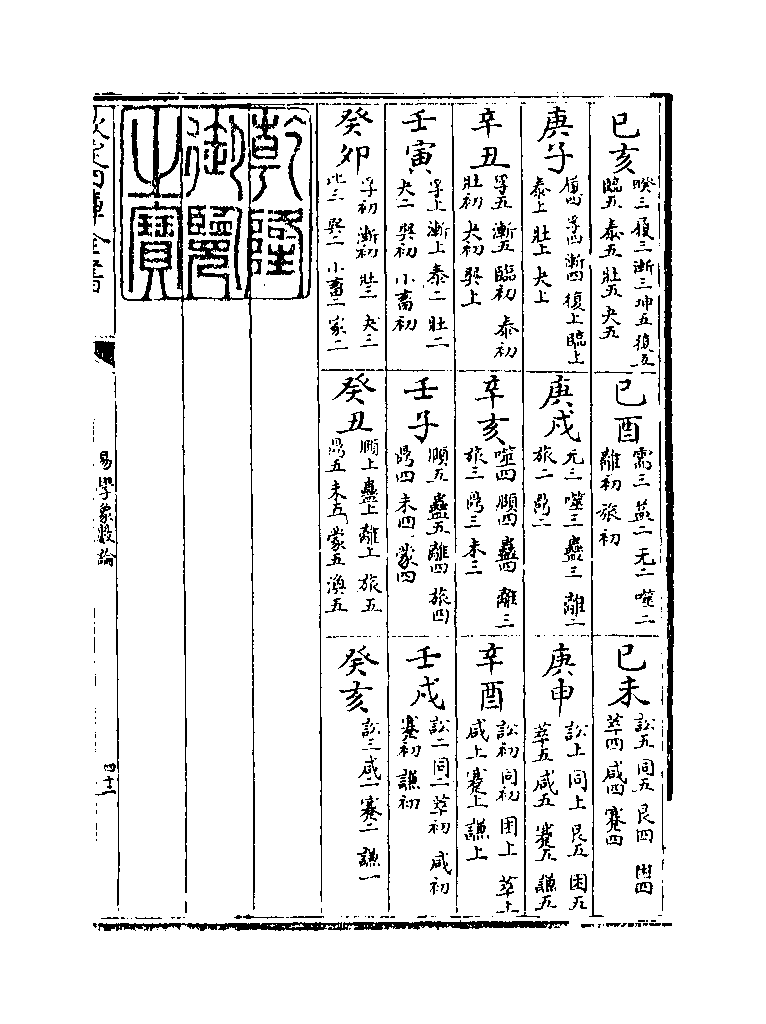 己亥
睽三 頤三 漸三 坤五 復五
臨五 泰五 壯五 夬五
己酉
需三 益二 无二 噬二
離初 旅初
己未
訟五 同五 艮四 困四
萃四 咸四 蹇四
庚子
頤四 孚四 漸四 復上 臨上
泰上 壯上 夬上
庚戌
无三 噬三 蠱三 離二
旅二 鼎二
庚申
訟上 同上 艮五 困五
萃五 咸五 蹇五 謙五
辛丑
孚五 漸五 臨初 泰初
壯初 夬初 巽上
辛亥
噬四 頤四 蠱四 離三
旅三 鼎三 未三
辛酉
訟初 同初 困上 萃上
咸上 蹇上 謙上
壬寅
孚上 漸上 泰二 壯二
夬二 巽初 小畜初
壬子
頤五 蠱五 離四 旅四
鼎四 未四 蒙四
壬戌
訟二 同二 萃初 咸初
蹇初 謙初
癸卯
孚初 漸初 壯三 夬三
比三 巽二 小畜二 家二
癸丑
頤上 蠱上 離上 旅五
鼎五 未五 蒙五 渙五
癸亥
訟三 咸二 蹇二 謙一
乾隆
御覽
之寶
欽定四庫全書
易學象數論
四十一